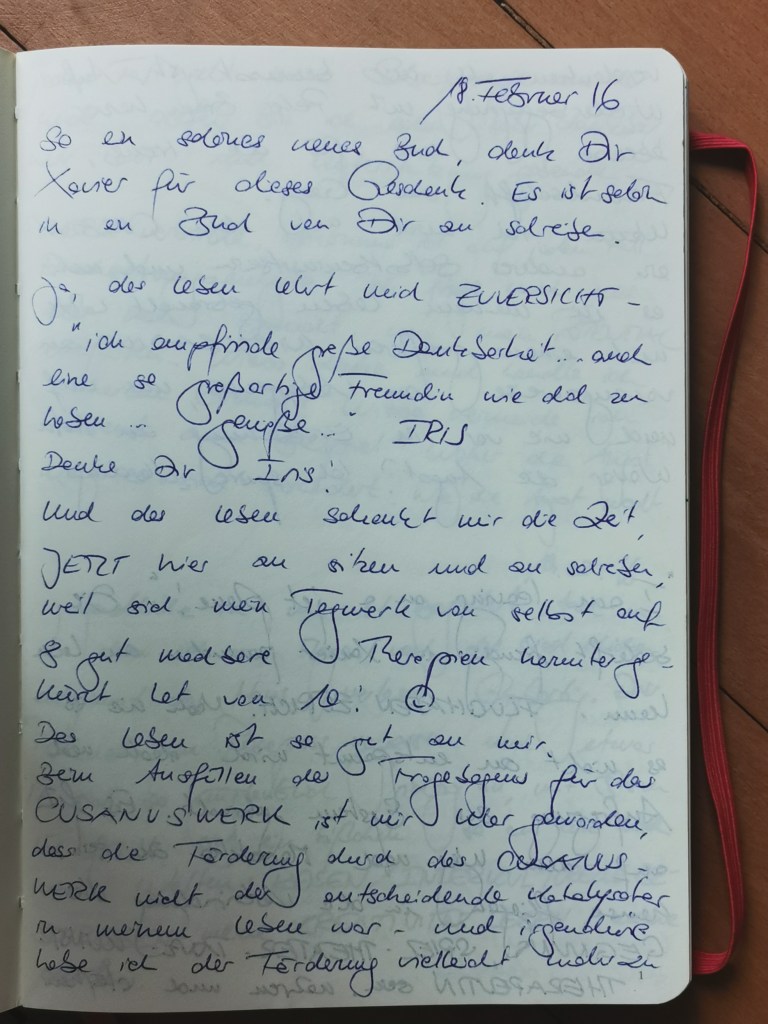 18. Februar 16
So ein schönes neues Buch, danke Dir
Xavier für dieses Geschenk. Es ist schön
in ein Buch von Dir zu schreiben.
Ja, das Leben lehrt mich ZUVERSICHT –
"ich empfinde große Dankbarkeit... auch
eine so großartige Freundin wie dich zu
haben... genieße..." IRIS
Danke Dir Iris!
Und das Leben schenkt mir die Zeit,
JETZT hier zu sitzen und zu schreiben,
weil sich mein Tagwerk von selbst auf
8 gut machbare Therapien herunterge-
kürzt hat von 10! ☺
Das Leben ist so gut zu mir.
Beim Ausfüllen des Fragebogens für das
CUSANUSWERK ist mir klar geworden,
dass die Förderung durch das CUSANUS-
WERK nicht der entscheidende Katalysator
in meinem Leben war – und irgendwie
habe ich der Förderung vielleicht mehr zu